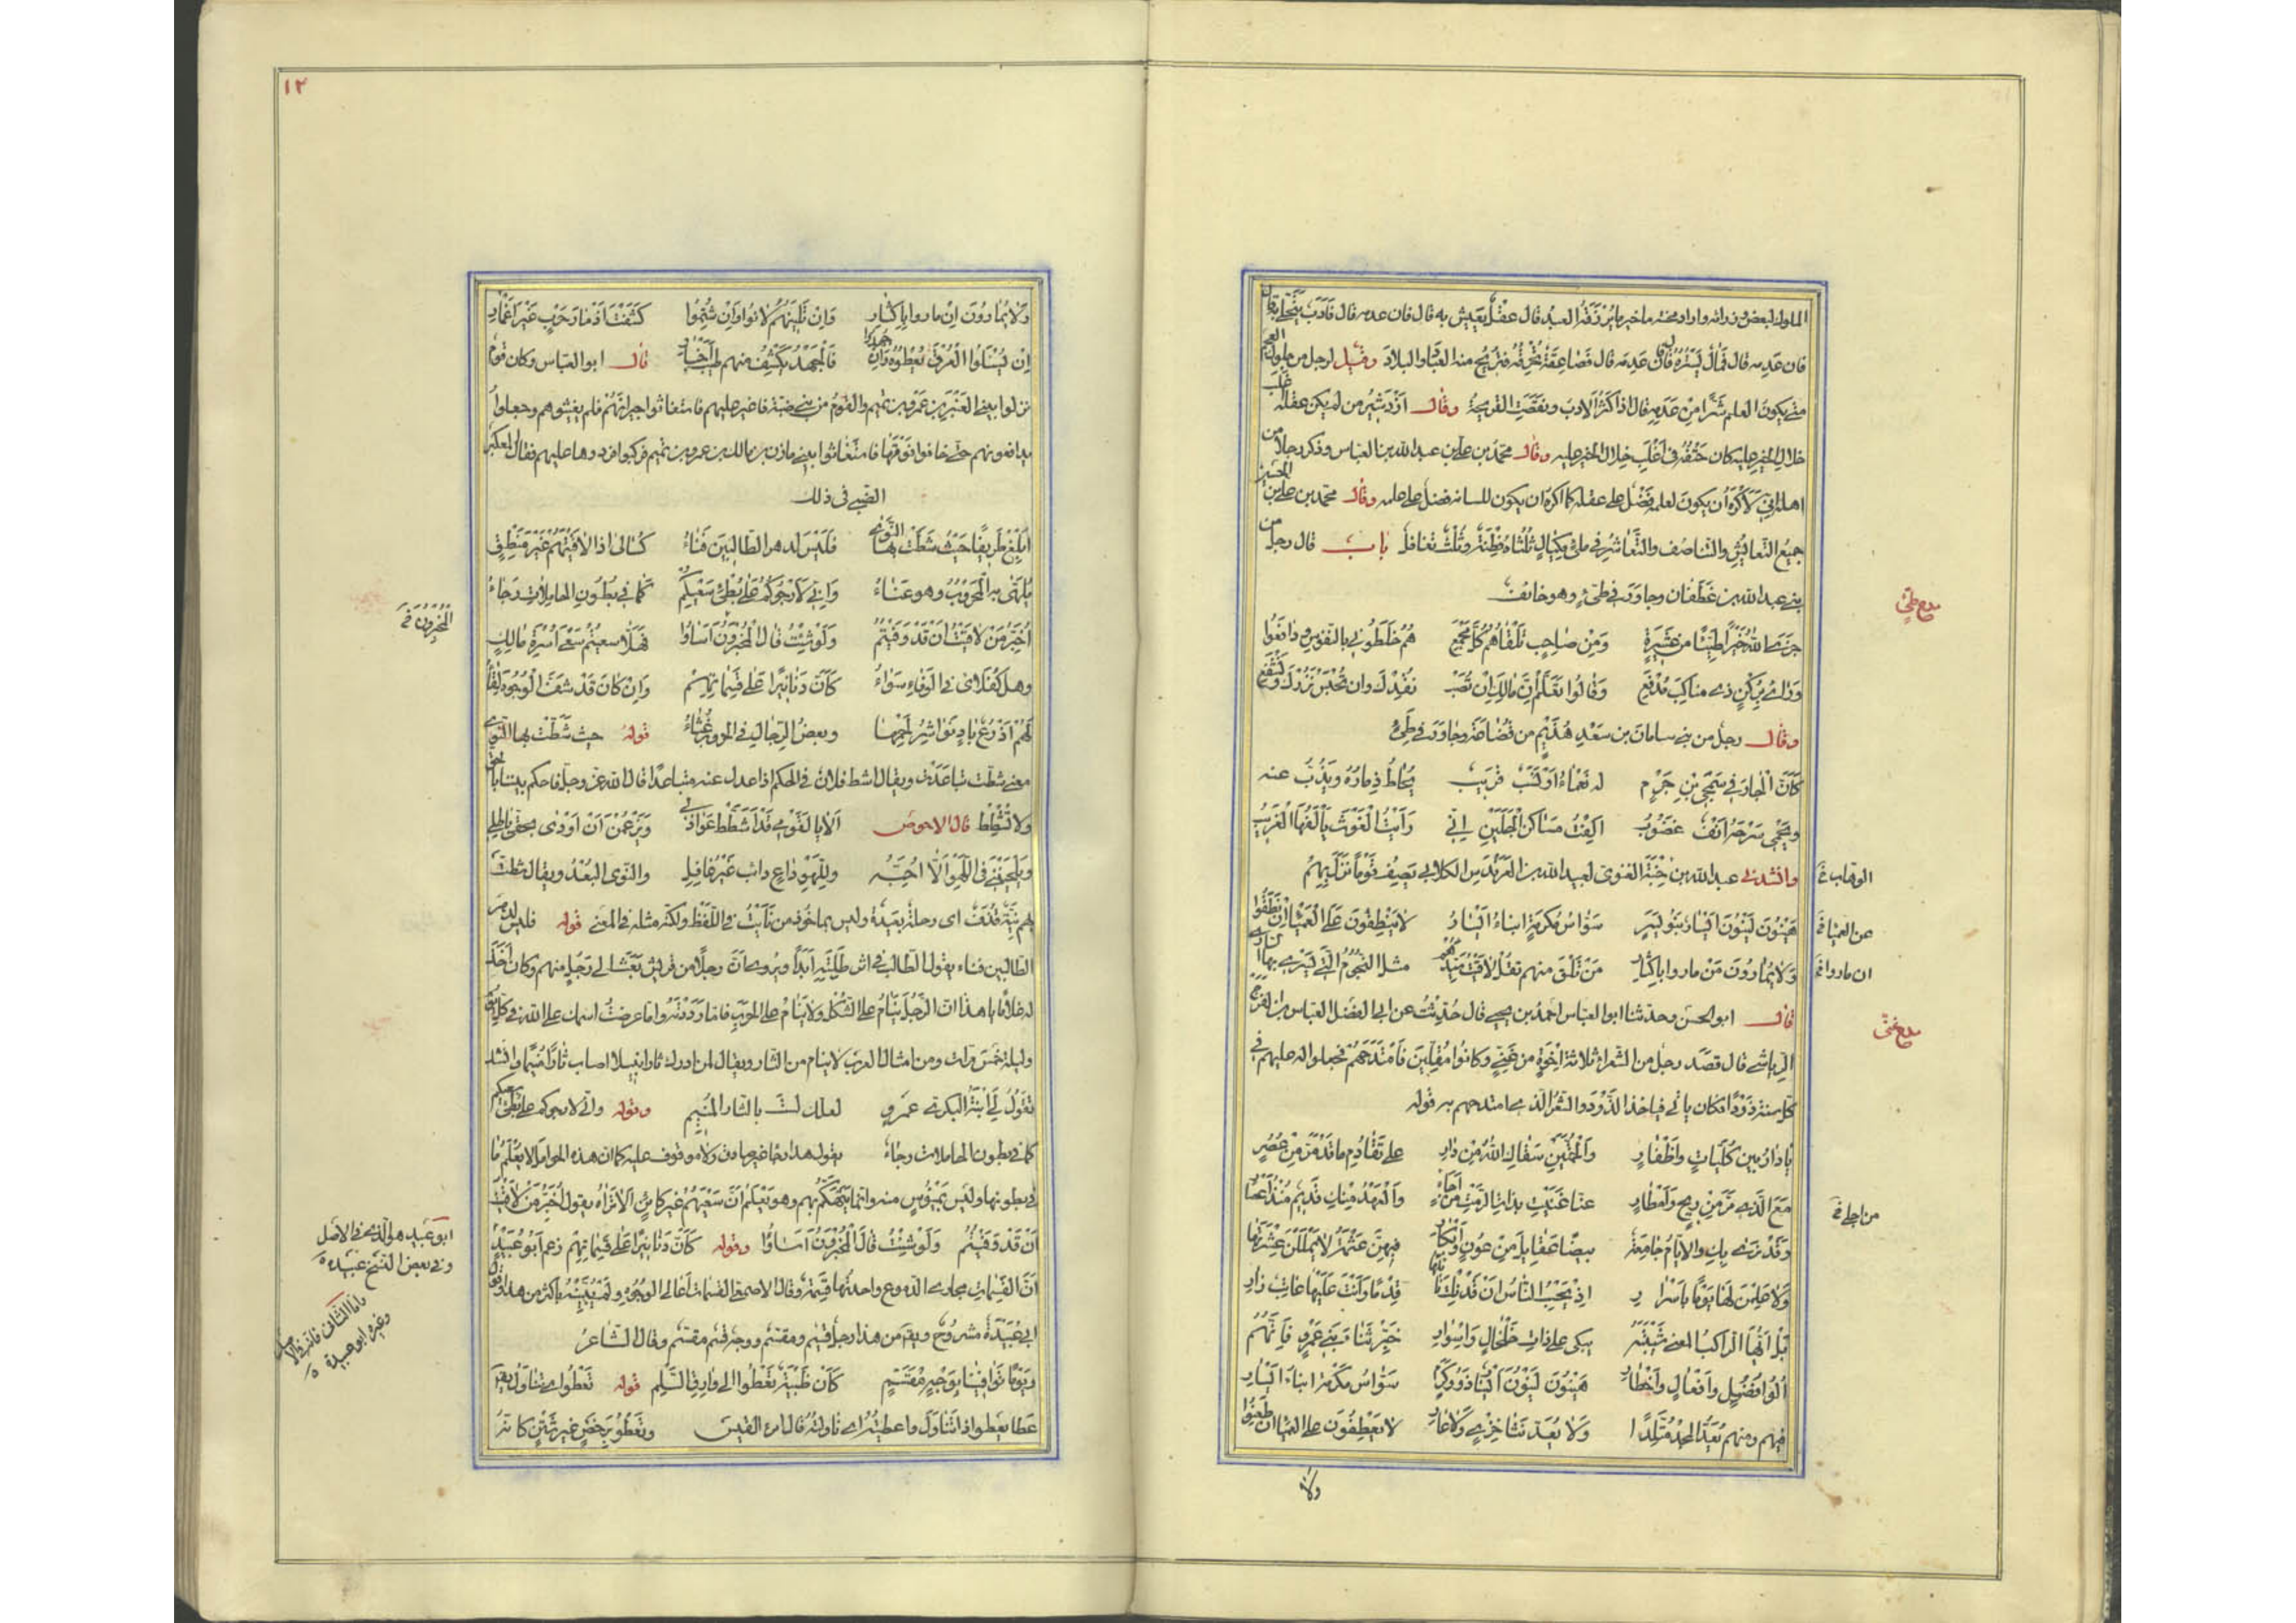 الملوك لبعض وزرائه واراد محنته ما خير ما يرزقه العبد قال عقل يعيش به قال فان عدمه قال فادب يتحلى به قال
فان عدمه قال فمال يستره قال فان عدمه قال فصاعقة تحرقه فتريح منه العباد والبلاد وقيل لرجل من ملوك العجم
متى يكون العلم شرا من عدمه قال اذا كثر الادب ونقصت القريحة وقال ازدشير من لم يكن عقله اغلب
خلال الخير عليه كان حتفه في اغلب خلال الخير عليه وقال محمد بن علي بن عبد الله بن العباس وذكر رجلا من
اهله اني لاكره ان يكون لعلمه فضل على عقله كما اكره ان يكون للسانه فضل على علمه وقال محمد بن علي بن الحسين
جميع التعايش والتناصف والتعاشر في ملئ مكيال ثلثاه فطنة وثلث تغافل باب قال رجل من
بني عبد الله بن غطفان وجاور في طيئ وهو خائف
جزى الله خيرا طيئا من عشيرة ومن صاحب تلقاهم كل مجمع هم خلطوني بالنفوس ودافعوا
ورائي بركن ذي مناكب مدفع وقالوا تعلم ان مالك ان تصب نفدك وان تحبس نزرك ونشفع
وقال رجل من بني سلامان بن سعد هذيم من قضاعة وجاور في طيئ
كان الجار في شمجى بن جرم له نعماء او نسب قريب يحاط ذماره ويذب عنه
ويحمي سرحه انف غضوب الفت مساكن الجبلين اني رايت الغوث يالفها الغريب
وانشدني عبد الله بن خبتة الغنوى لعبد الله بن العرندس الكلابي يصف قوما نزل بهم
هينون لينون ايسار بنو يسر سواس مكرمة ابناء ايسار لا ينطقون على العمياء ان نطقوا
ولا يمارون من ماروا باكثار من تلق منهم تقل لاقيت سيدهم مثل النجوم التي يسري بها الساري
قال ابو الحسن وحدثنا ابو العباس احمد بن يحيى قال حدثت عن ابي الفضل العباس بن الفرج
الرياشي قال قصد رجل من الشعراء ثلاثة اخوة من غني وكانوا مقلين فامتدحهم فجعلوا له عليهم في
كل سنة ذودا فكان ياتي فياخذ الذود والشعر الذي امتدحهم به قوله
يا دار بين كليات واظفار والحمتين سقاك الله من دار على تقادم ما قد مر من عصر
مع الذي مر من ريح وامطار عنا غنيت بذات الرمث من اجلى والعهد منك قديم منذ اعصار
وقد نرى بك والايام جامعة بيضا عقائل من عون وابكار فيهن عثمة لا يمللن عشرتها
ولا علمن لها يوما باسرار اذ يحسب الناس ان قد نلت نائلها قدما وانت عليها عاتب زار
بل ايها الراكب المفنى شبيبته يبكي على ذات خلخال واسوار خبر ثناء بني عمرو فانهم
الوا فضول وافعال واخطار هينون لينون ايسار ذوو كرم سواس مكرمة ابناء ايسار
فيهم ومنهم يعد المجد متلدا ولا يعد نثا خزي ولا عار لا يعطفون على العمياء ان ظعنوا
ولا
بلغ طيئ
الوقاب خ
عن العمياء خ
ان ماروا خ
بلغ غني
من اجلي خ
١٢
ولا يمارون ان ماروا باكثار وان تلينتهم لانوا وان شتموا كشفت اذمار حرب غير اغمار
ان يسئلوا العرف يعطوه وان جهدوا فالجهد يكشف منهم طيب اخبار قال ابو العباس وكان قوم
نزلوا ببني العنبر بن عمرو بن تميم والقوم من بني ضبة فاغير عليهم فاستغاثوا جيرانهم فلم يغيثوهم وجعلوا
يدافعونهم حتى خافوا فوتها فاستغاثوا ببني مازن بن مالك بن عمرو بن تميم فركبوا فردوها عليهم فقال المعكبر
الضبي في ذلك
ابلغ طريفا حيث شطت بها النوى فليس لدهر الطالبين فناء كسالى اذا لاقيتهم غير منطق
يلهى به المحروب وهو عناء واني لارجوكم على بطئ سعيكم كما في بطون الحاملات رجاء
اخبر من لاقيت ان قد وفيتم ولو شئت قال المخبرون اساؤا فهلا سعيتم سعي اسرة مالك
وهل كفلائي في الوفاء سواء كان دنانيرا على قسماتهم وان كان قد شف الوجوه لقاء
لهم اذرع باد نواشر لحمها وبعض الرجال في الحروب غثاء قوله حيث شطت بها النوى
معنى شطت تباعدت ويقال اشط فلان في الحكم اذا عدل عنه متباعدا قال الله عز وجل فاحكم بيننا بالحق
ولا تشطط قال الاحوص الا يا لقومي قد اشطت عواذلي ويزعمن ان اودى بحقي باطلي
ويلحينني في اللهو الا احبه وللهو داع دائب غير غافل والنوى البعد ويقال شطت
بهم نية قذف اى رحلة بعيدة وليس بماخوذ من نايت في اللفظ ولكنه مثله في المعنى قوله فليس لدهر
الطالبين فناء يقول الطالب في اثر طلبته ابدا ويروى ان رجلا من قريش بعث الى رجل منهم وكان اخذ
له غلاما يا هذا ان الرجل ينام على الثكل ولا ينام على الحرب فاما رددته واما عرضت اسمك على الله في كل يوم
وليلة خمس مرات ومن امثال العرب لا ينام من اثار ويقال لمن ادرك ثارا نبيلا اصاب ثارا منيما وانشد
تقول لي ابنة البكري عمرو لعلك لست بالثار المنيم وقوله واني لارجوكم على بطئ سعيكم
كما في بطون الحاملات رجاء يقول هذا رجاء غير صادق ولا موقوف عليه كما ان هذه الحوامل لا يعلم ما
في بطونها وليس بميؤس منه وانما يتهكم بهم وهو يعلم ان سعيهم غير كائن الا تراه يقول اخبر من لاقيت
ان قد وفيتم ولو شئت قال المخبرون اساؤا وقوله كان دنانيرا على قسماتهم زعم ابو عبيد
ان القسمات مجاري الدموع واحدتها قسمة وقال الاصمعي القسمات اعالي الوجوه ولم يبينه باكثر من هذا وقول
ابي عبيدة مشروح ويقال من هذا رجل قسيم ومقسم ووجه قسيم مقسم وقال الشاعر
ويوما توافينا بوجه مقسم كان ظبية تعطوا الى وارق السلم قوله تعطوا اى تتناول يقال
عطا يعطو اذا تناول واعطيته اى ناولته قال امرؤ القيس وتعطو برخص غير شثن كانه
المخبرون خ
ابو عبيد هو الذي في الاصل
وفي بعض النسخ عبيدة ٥